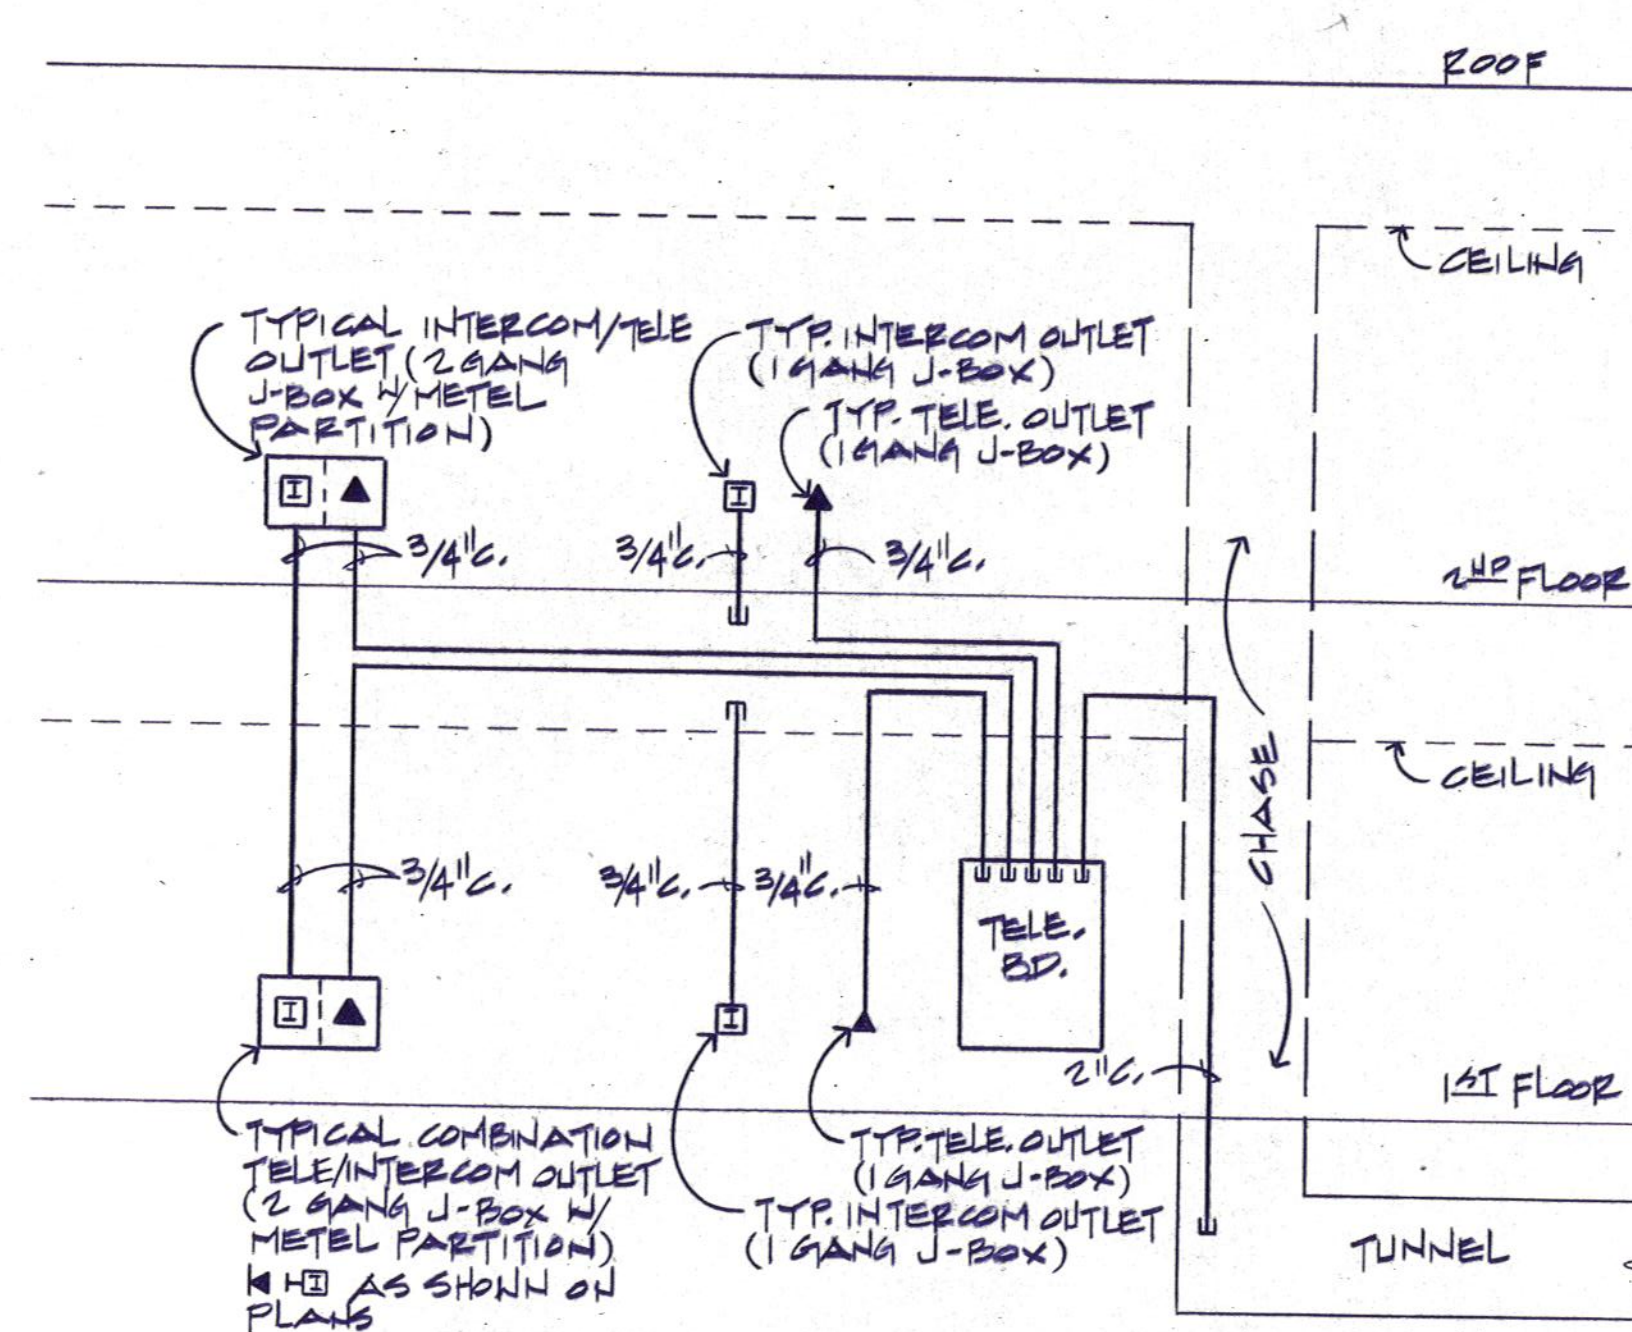 ROOF
CEILING
TYPICAL INTERCOM/TELE
OUTLET (2 GANG
J-BOX W/ METEL
PARTITION)
TYP. INTERCOM OUTLET
(1 GANG J-BOX)
TYP. TELE. OUTLET
(1 GANG J-BOX)
I
I
3/4"C.
3/4"C.
3/4"C.
2ND FLOOR
CEILING
CHASE
3/4"C.
3/4"C.
3/4"C.
TELE.
BD.
I
I
2"C.
1ST FLOOR
TYPICAL COMBINATION
TELE/INTERCOM OUTLET
(2 GANG J-BOX W/
METEL PARTITION)
I AS SHOWN ON
PLANS
TYP. TELE. OUTLET
(1 GANG J-BOX)
TYP. INTERCOM OUTLET
(1 GANG J-BOX)
TUNNEL